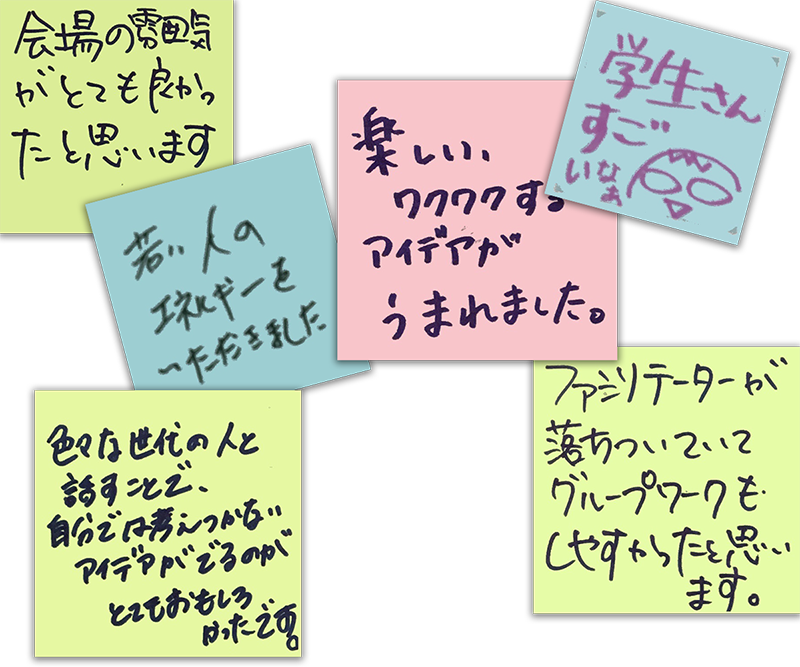 会場の雰囲気
がとても良かっ
たと思います
若い人の
エネルギーを
いただきました
楽しい、
ワクワクする
アイデアが
うまれました。
学生さん
すご
いなぁ
色々な世代の人と
話すことで、
自分では考えつかない
アイデアがでるのが
とてもおもしろ
かったです。
ファシリテーターが
落ちついていて
グループワークも
しやすかったと思い
ます。